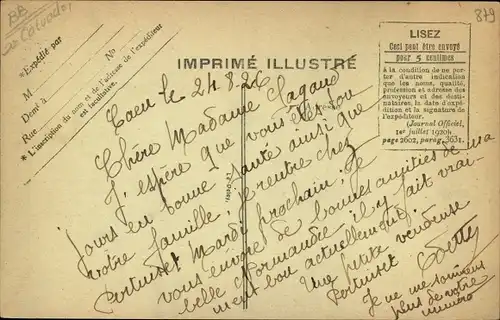 BB
Calvados
879
*Expédié par
M
Demt à
Rue
* L'inscription du nom et de l'adresse de l'expéditeur
est facultative.
IMPRIMÉ ILLUSTRÉ
LISEZ
Ceci peut être envoyé
pour 5 centimes
à la condition de ne por-
ter d'autre indication
que les noms, qualité,
profession et adresse des
envoyeurs et des desti-
nataires, la date d'expé-
dition et la signature de
l'expéditeur.
(Journal Officiel,
1er juillet 1920)
page 2602, parag. 3631.
Caen le 24.8.26
Chère Madame
J'espère que vous êtes tou
jours en bonne santé ainsi que
votre famille je rentre chez
Portuiset Mardi prochain; je
vous envoie de bonnes amitiés de ma
belle Normandie il y fait vrai-
ment bon actuellement;
Une petite vendeuse
Portuiset
Je ne me souviens
plus de votre
numéro